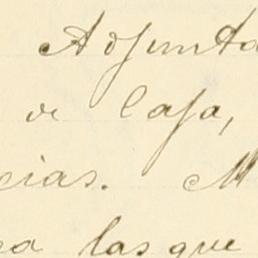 Adjunta
de Caja,
cias. M
a las que